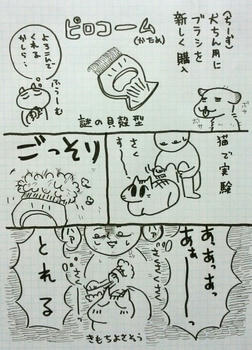 〈ちーず〉
犬ちん用に
ブラシを
新しく購入
ピロコーム
(かため)
謎の貝殻型
ふぅーむ
よろこんで
くれる
かしら…
ボサ
ボサ
猫で実験
さく
すっ
ごっそり
あぁっあっ
あぁーーっ
とれる
さくー
ハァ
ハァ
きもちよさそう